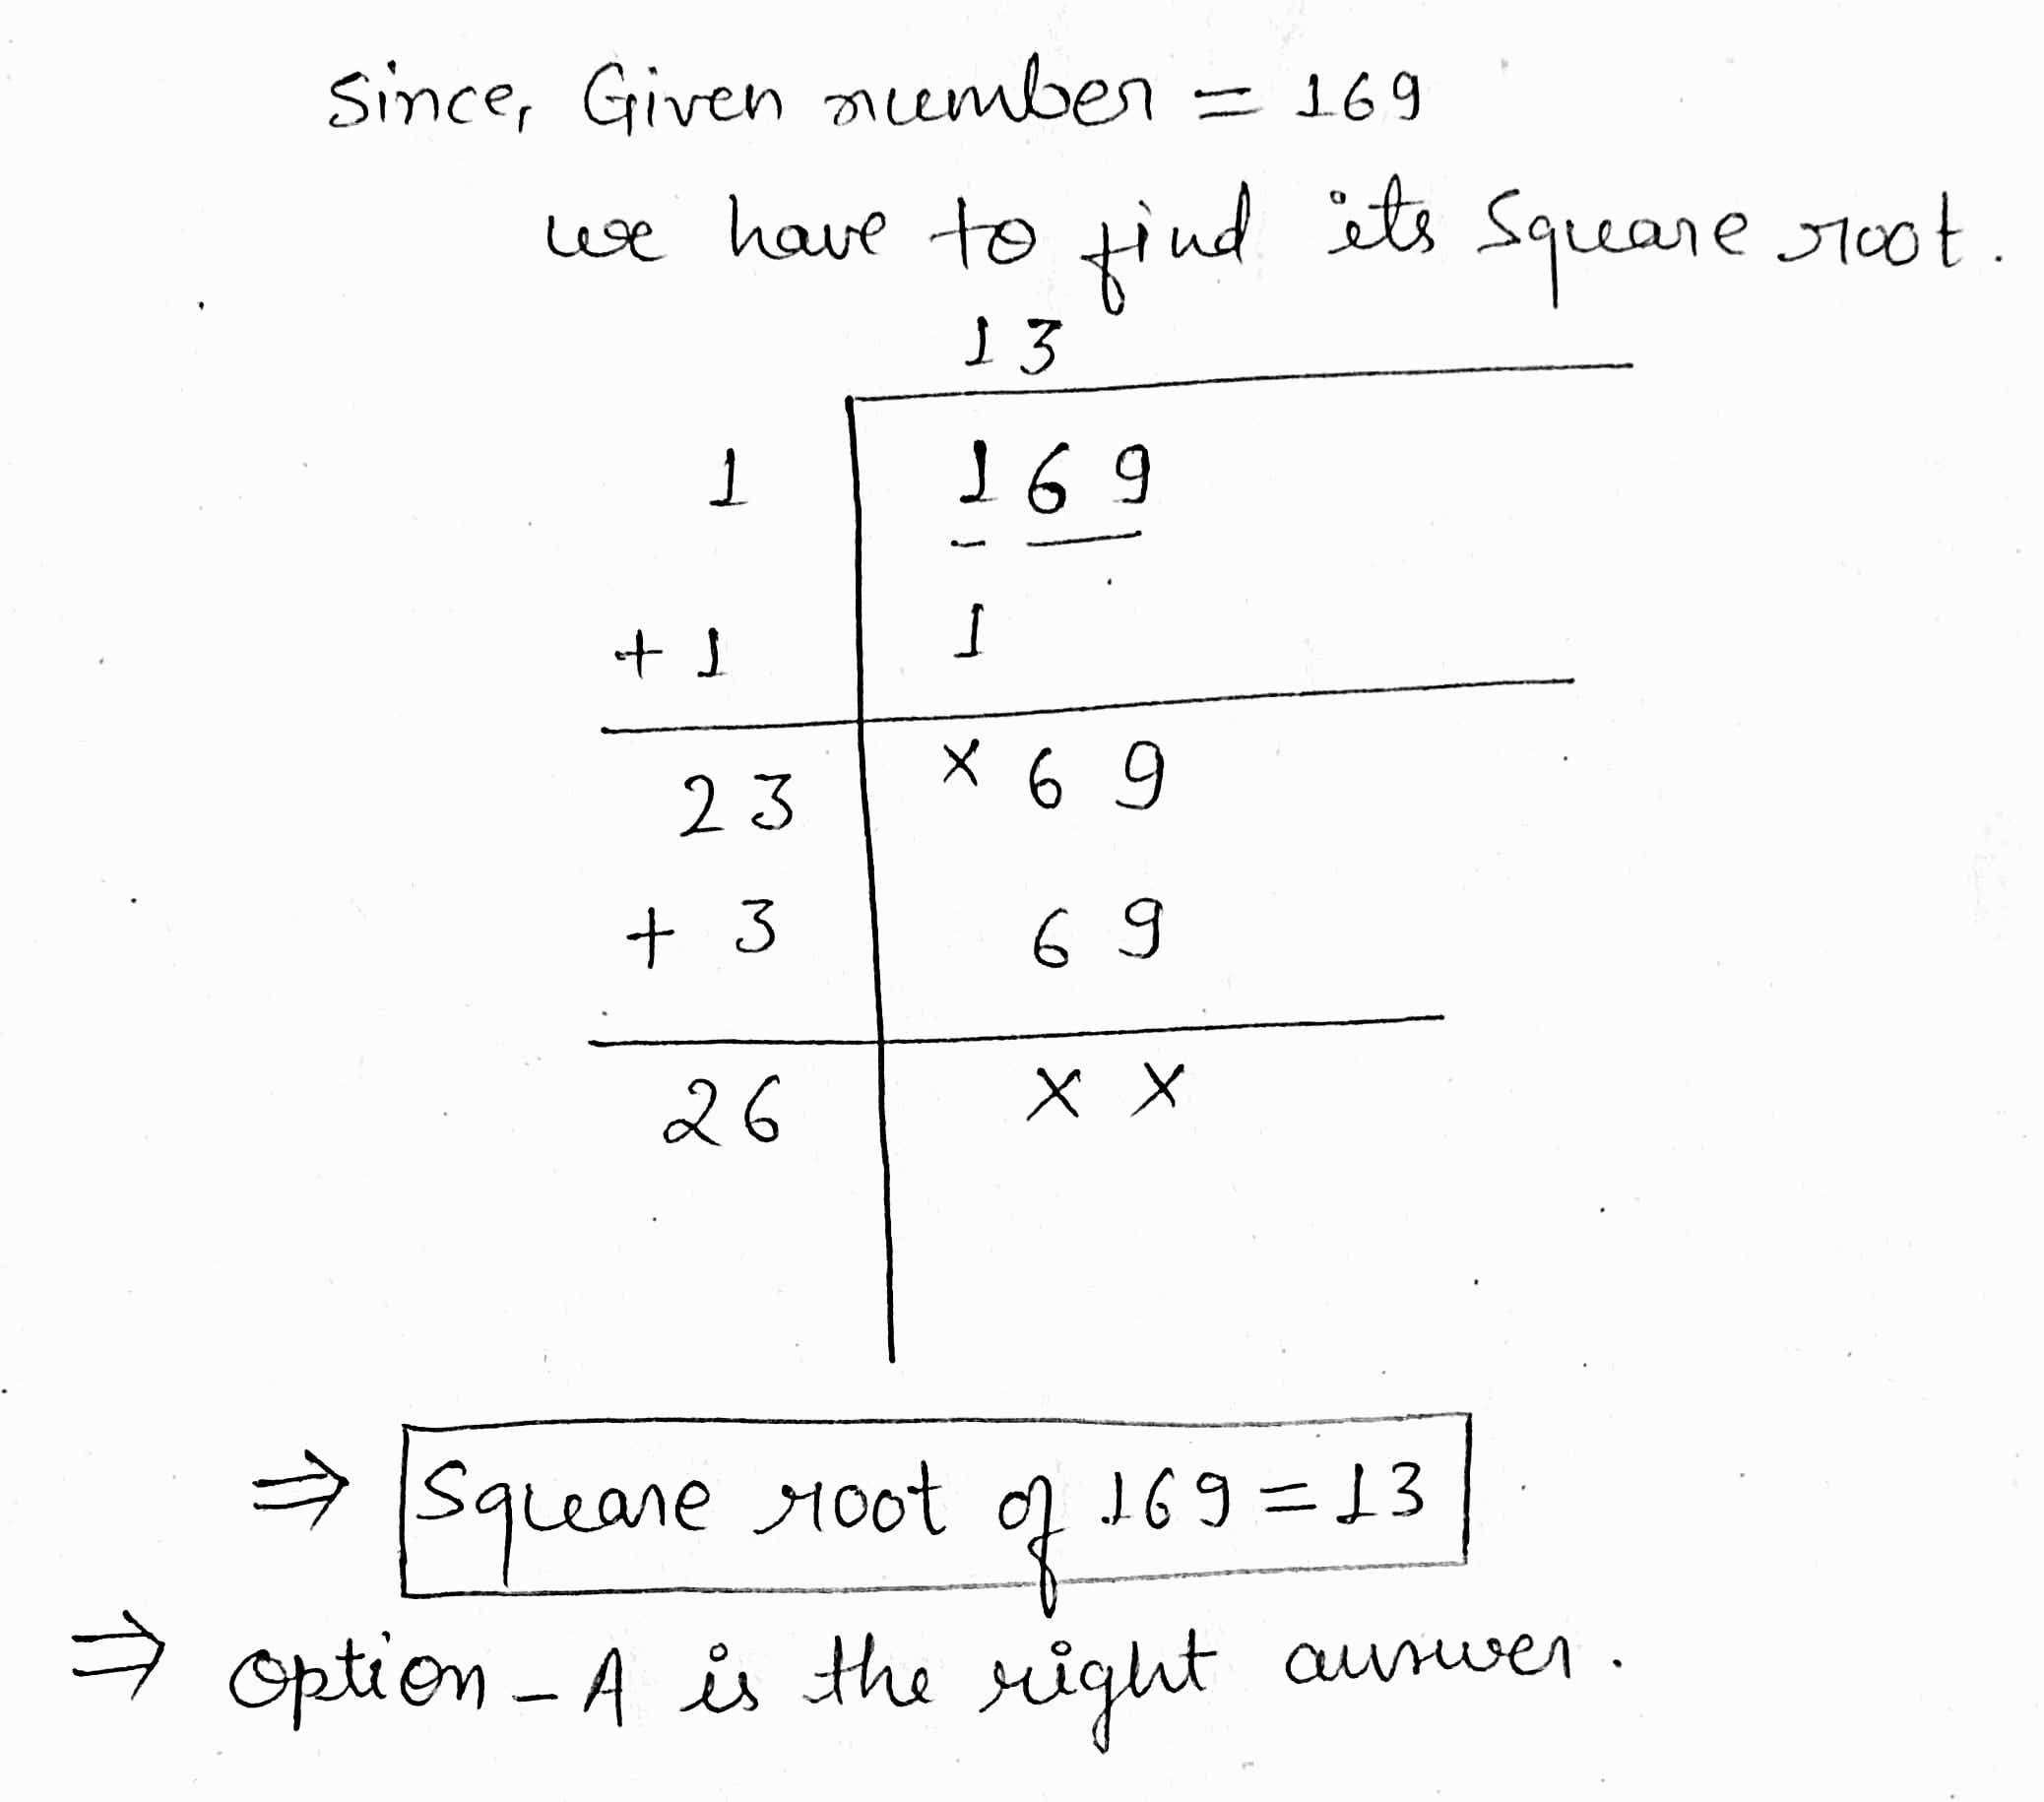 Since, Given number = 169
we have to find its Square root.
13
1 169
+ 1 1
23 × 6 9
+ 3 6 9
26 × ×
⇒ Square root of 169 = 13
⇒ Option - A is the right answer.